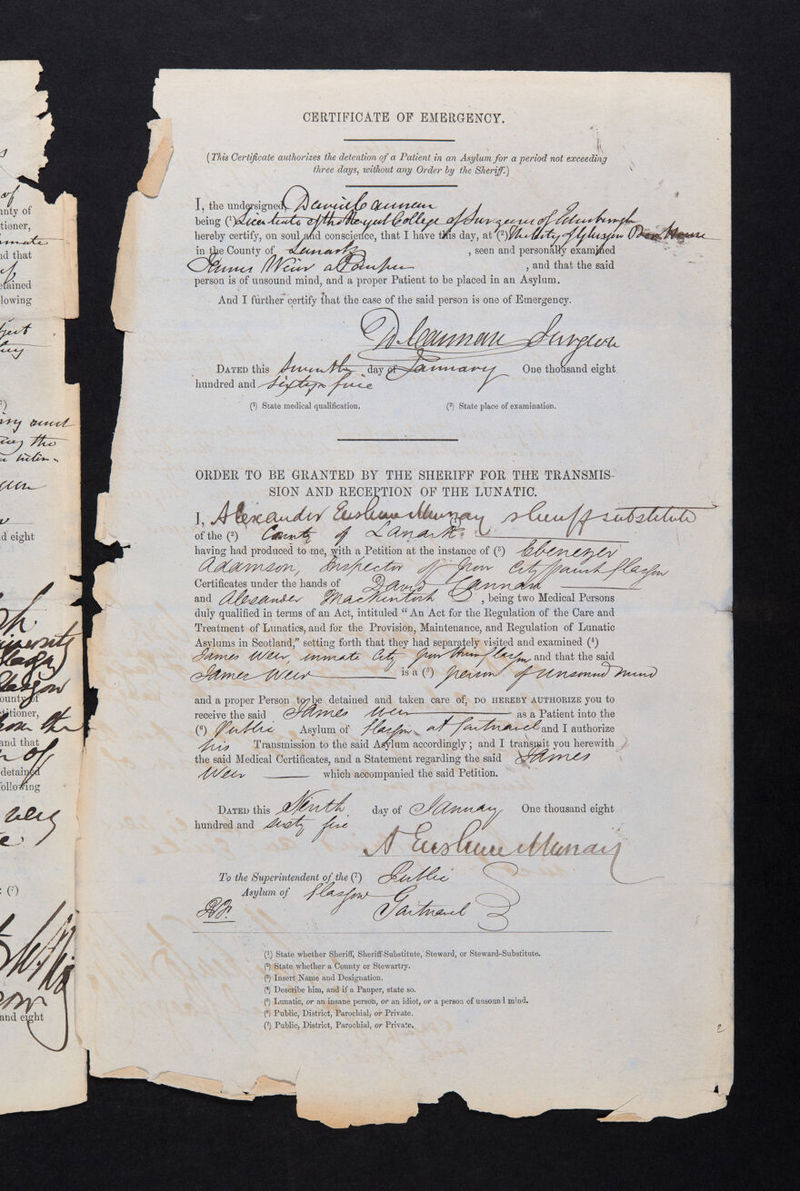 CERTIFICATE OF EMERGENCY.
(This Certificate authorizes the detention of a Patient in an Asylum for a period not exceeding
three days, without any Order by the Sheriff.)
I, the undersigned, David Cannan
being (¹) Licentiate of the Royal College of Surgeons of Edinburgh
hereby certify, on soul and conscience, that I have this day, at (²) The City of Glasgow Poor House
in the County of Lanark , seen and personally examined
James Weir a Pauper , and that the said
person is of unsound mind, and a proper Patient to be placed in an Asylum.
And I further certify that the case of the said person is one of Emergency.
D. Cannan Surgeon
DATED this Seventh day of January One thousand eight
hundred and Sixty five
(¹) State medical qualification. (²) State place of examination.
ORDER TO BE GRANTED BY THE SHERIFF FOR THE TRANSMIS-
SION AND RECEPTION OF THE LUNATIC.
I, Alexander Erskine Murray sheriff substitute
of the (²) County of Lanark
having had produced to me, with a Petition at the instance of (³) Ebenezer
Adamson, Inspector of Poor City Parish Glasgow
Certificates under the hands of David Cannan
and Alexander Mackintosh , being two Medical Persons
duly qualified in terms of an Act, intituled “An Act for the Regulation of the Care and
Treatment of Lunatics, and for the Provision, Maintenance, and Regulation of Lunatic
Asylums in Scotland,” setting forth that they had separately visited and examined (⁴)
James Weir, inmate City Poor House Glasgow and that the said
James Weir is a (⁵) person of unsound mind
and a proper Person to be detained and taken care of, DO HEREBY AUTHORIZE you to
receive the said James Weir as a Patient into the
(⁶) Public Asylum of Glasgow at Gartnavel and I authorize
his Transmission to the said Asylum accordingly ; and I transmit you herewith
the said Medical Certificates, and a Statement regarding the said James
Weir which accompanied the said Petition.
DATED this Ninth day of January One thousand eight
hundred and sixty five
A Erskine Murray
To the Superintendent of the (⁷) Public
Asylum of Glasgow
Gartnavel
(¹) State whether Sheriff, Sheriff-Substitute, Steward, or Steward-Substitute.
(²) State whether a County or Stewartry.
(³) Insert Name and Designation.
(⁴) Describe him, and if a Pauper, state so.
(⁵) Lunatic, or an insane person, or an idiot, or a person of unsound mind.
(⁶) Public, District, Parochial, or Private.
(⁷) Public, District, Parochial, or Private.